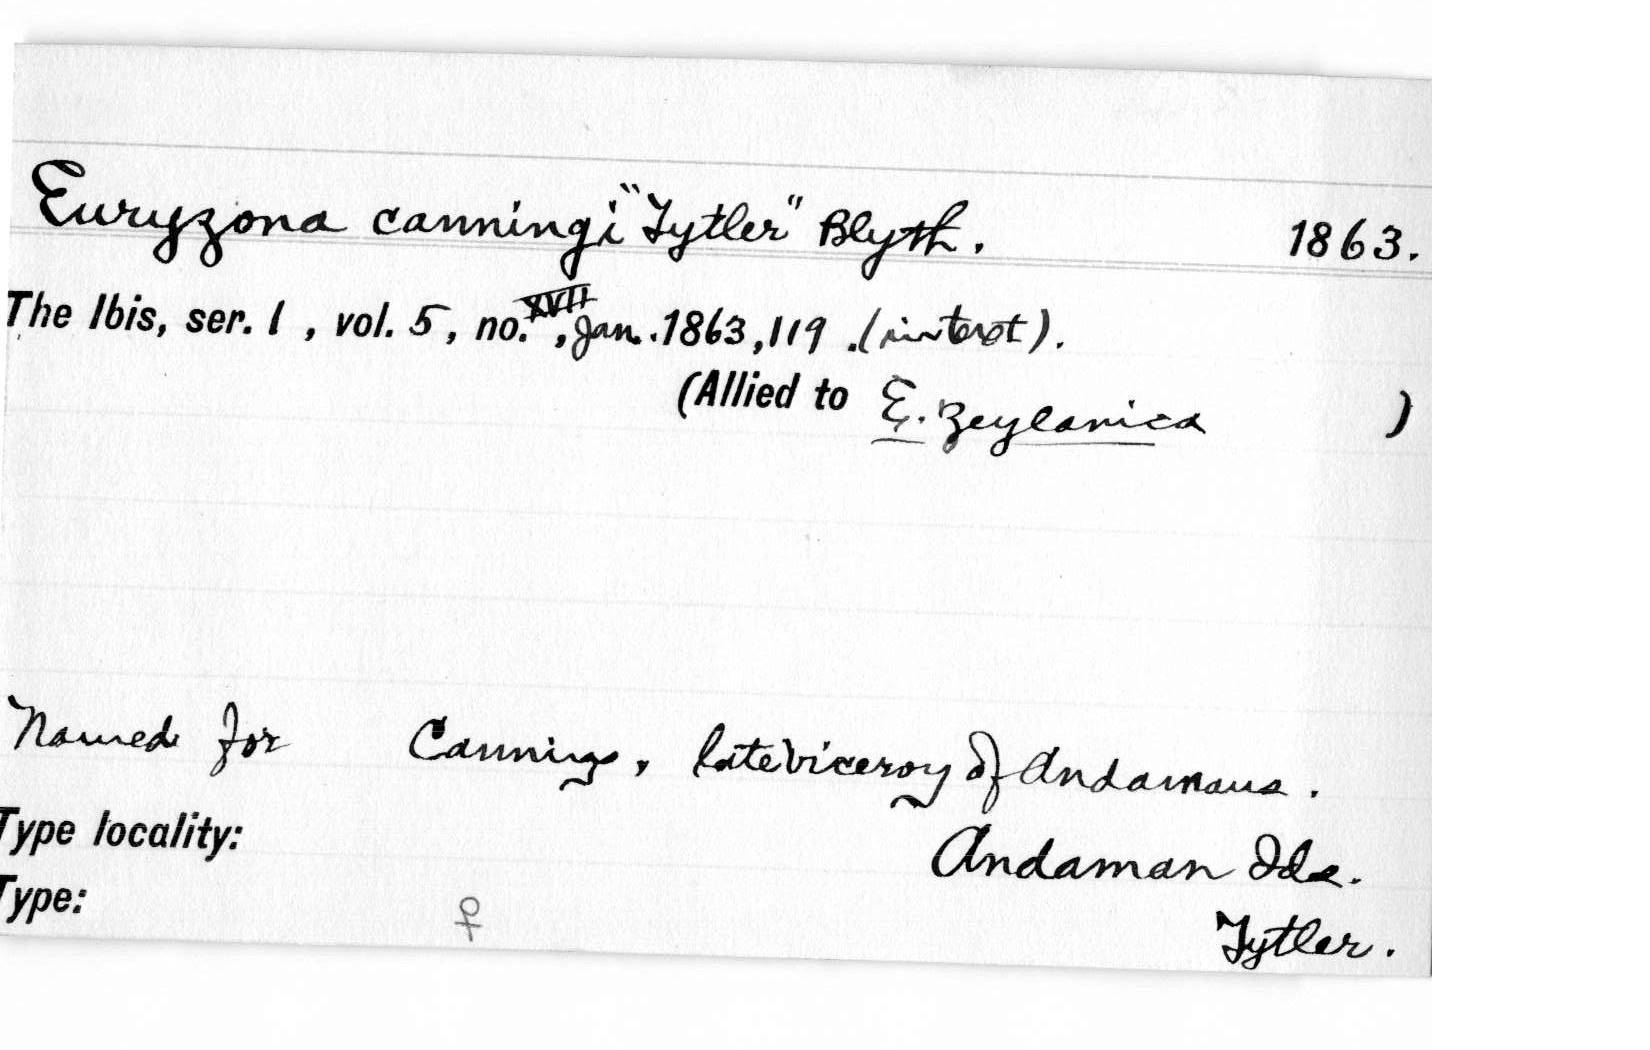 Euryzona canningi "Tytler" Blyth. 1863.
The Ibis, ser. 1, vol. 5, no. XVII, Jan. 1863, 119. (in text).
(Allied to E. zeylanica )
Named for Canning, late viceroy of Andamans.
Type locality: Andaman Ids.
Type: ♀ Tytler.